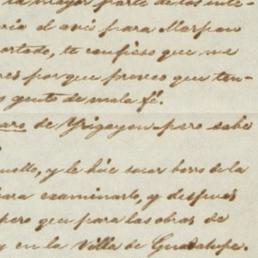 la mayor parte de los inte-
ria el avi para Marpan
ortado, te confieso que me
res por que preveo que ten-
s gente de mala fé.
aro de Yrigoyen pero sabe
uello, y le hice sacar borro de la
para examinarlo, y despues
pero que para las obras de
y en la Villa de Guadalupe.